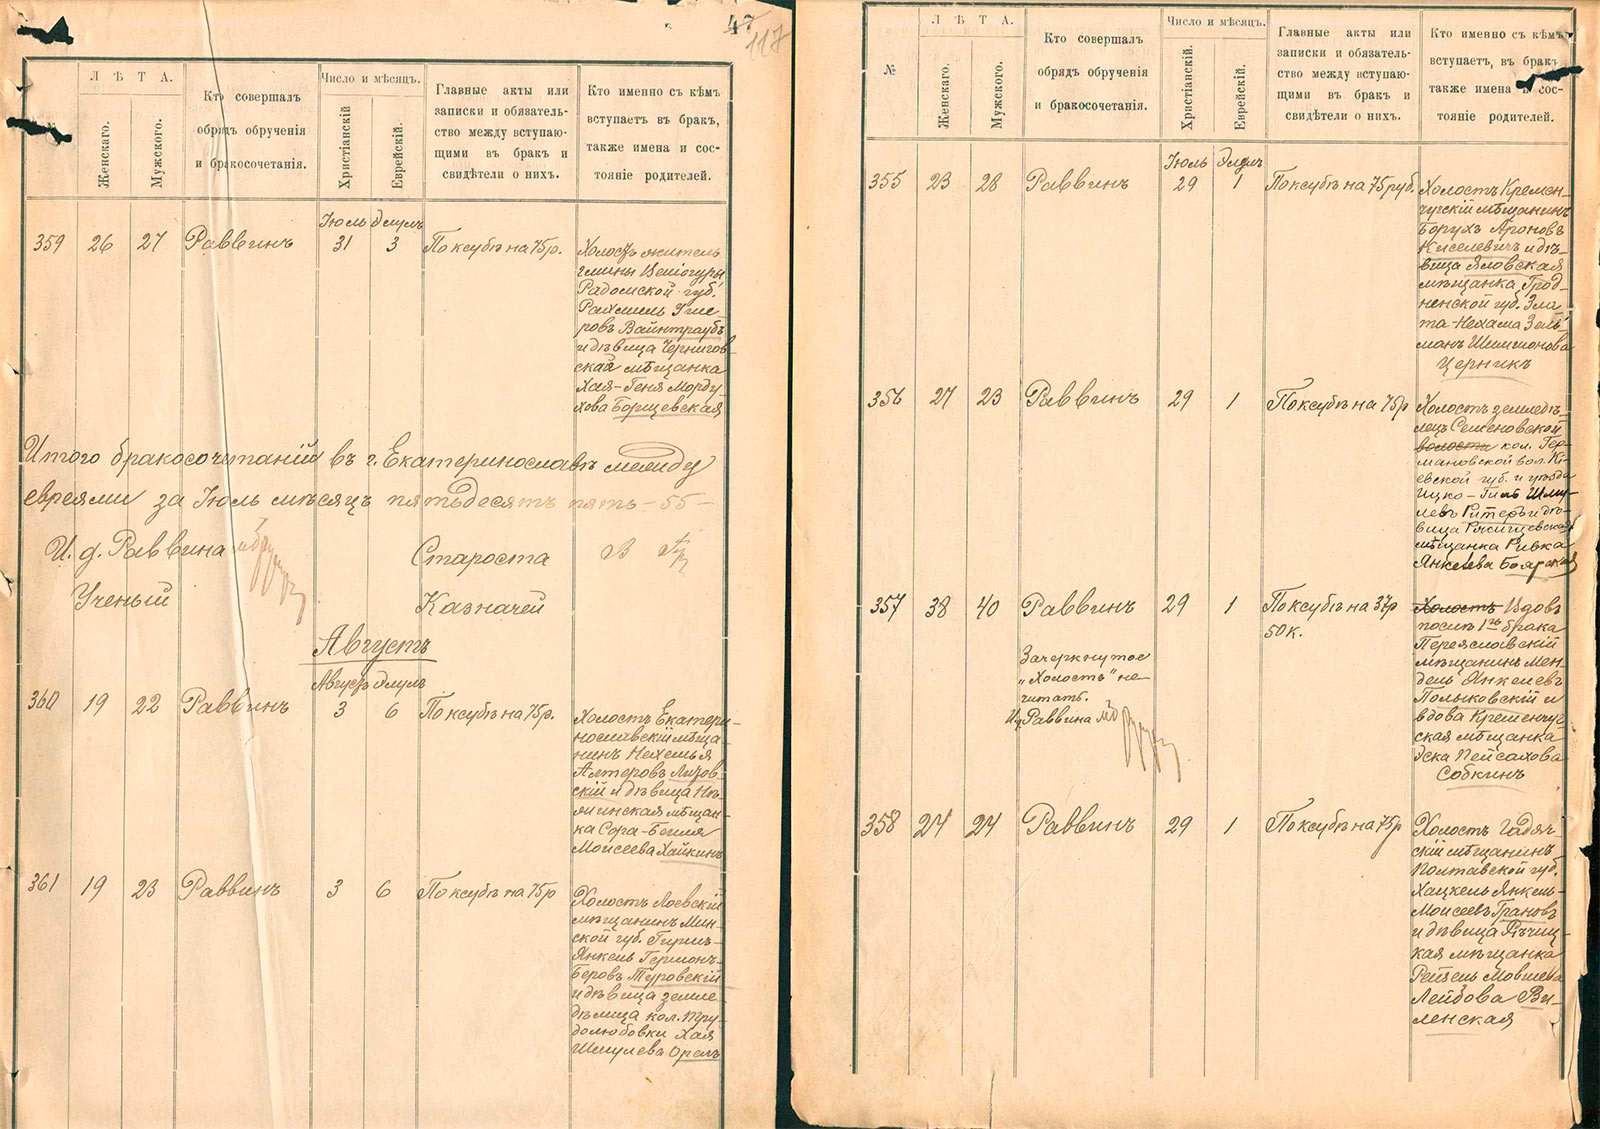 47
117
ЛѢТА.
Женскаго.
Мужского.
Кто совершалъ
обрядъ обрученія
и бракосочетанія.
Число и мѣсяцъ.
Христіанскій
Еврейскій.
Главные акты или
записки и обязатель-
ство между вступаю-
щими въ бракъ и
свидѣтели о нихъ.
Кто именно съ кѣмъ
вступаетъ въ бракъ,
также имена и сос-
тояніе родителей.
Іюль Элулъ
359 26 27 Раввинъ 31 3 По ксубѣ на 75 р.
Холостъ житель
гмины
Радомской губ.
Рахмиль
ровъ Вайнтраубъ
и дѣвица Чернигов-
ская мѣщанка
Хая-Геня Морду
хова Борщевская
Итого бракосочетаній въ г. Екатеринославѣ между
евреями за Іюль мѣсяцъ пятьдесятъ пять - 55 -
И. д. Раввина
Староста
Ученый
Казначей
Августъ
Августъ Элулъ
360 19 22 Раввинъ 3 6 По ксубѣ на 75 р.
Холостъ Екатери-
нославскій мѣща-
нинъ Нехемья
Алтеровъ Лизов-
скій и дѣвица Нѣ-
жинская мѣщан-
ка Сора-Бейля
Моисеева Хайкинъ
361 19 23 Раввинъ 3 6 По ксубѣ на 75 р
Холостъ Лоевскій
мѣщанинъ Мин-
ской губ. Гиршъ-
Янкель Гермонъ-
Беровъ Туровскій
и дѣвица земле-
дѣлица кол. Тру-
долюбовки Хая
Шмулева Орелъ
№
ЛѢТА.
Женскаго.
Мужского.
Кто совершалъ
обрядъ обрученія
и бракосочетанія.
Число и мѣсяцъ.
Христіанскій.
Еврейскій.
Главные акты или
записки и обязатель-
ство между вступаю-
щими въ бракъ и
свидѣтели о нихъ.
Кто именно съ кѣмъ
вступаетъ, въ бракъ
также имена и сос-
тояніе родителей.
Іюль Элулъ
355 23 28 Раввинъ 29 1 По ксубѣ на 75 руб.
Холостъ Кремен-
чугскій мѣщанинъ
Борухъ Ароновъ
Киселевичъ и дѣ-
вица Яловская
мѣщанка Грод-
ненской губ. Зла-
та-Нехама Зель-
манъ Шимионова
Церникъ
356 27 23 Раввинъ 29 1 По ксубѣ на 75 р
Холостъ земледѣ-
лецъ Семеновской
волости кол. Гер-
мановской вол. Кі-
евской губ. и уѣзда
Ицко-Гиль Шму-
левъ Ритеръ и дѣ-
вица Ржищевская
мѣщанка Ривка
Янкелева Боярская
357 38 40 Раввинъ 29 1 По ксубѣ на 37 р
50 к.
Холостъ Вдовъ
послѣ 1го брака
Переяславскій
мѣщанинъ Мен-
дель Янкелевъ
Полыковскій и
вдова Кременчуг-
ская мѣщанка
Эска Пейсахова
Собкинъ
Зачеркнутое
„Холостъ" не
читать.
Ид Раввина
358 24 24 Раввинъ 29 1 По ксубѣ на 75 р
Холостъ Гадяч-
скій мѣщанинъ
Полтавской губ.
Хацкель Янкель-
Моисеевъ Грановъ
и дѣвица Рѣчиц-
кая мѣщанка
Рейзель Мовшева
Лейбова Ви-
ленская